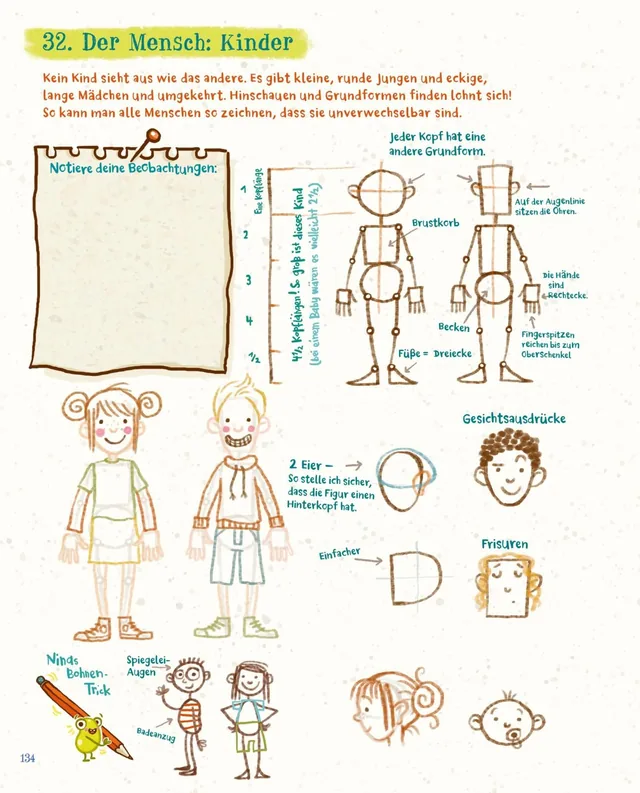 32. Der Mensch: Kinder
Kein Kind sieht aus wie das andere. Es gibt kleine, runde Jungen und eckige,
lange Mädchen und umgekehrt. Hinschauen und Grundformen finden lohnt sich!
So kann man alle Menschen so zeichnen, dass sie unverwechselbar sind.
Notiere deine Beobachtungen:
1
2
3
4
1/2
Eine Kopflänge
4½ Kopflängen! So groß ist dieses Kind
(bei einem Baby wären es vielleicht 2½)
Jeder Kopf hat eine
andere Grundform.
Brustkorb
Auf der Augenlinie
sitzen die Ohren.
Die Hände
sind
Rechtecke.
Becken
Fingerspitzen
reichen bis zum
Oberschenkel
Füße = Dreiecke
Gesichtsausdrücke
2 Eier –
So stelle ich sicher,
dass die Figur einen
Hinterkopf hat.
Einfacher
Frisuren
Ninas
Bohnen-
Trick
Spiegelei-
Augen
Badeanzug
134